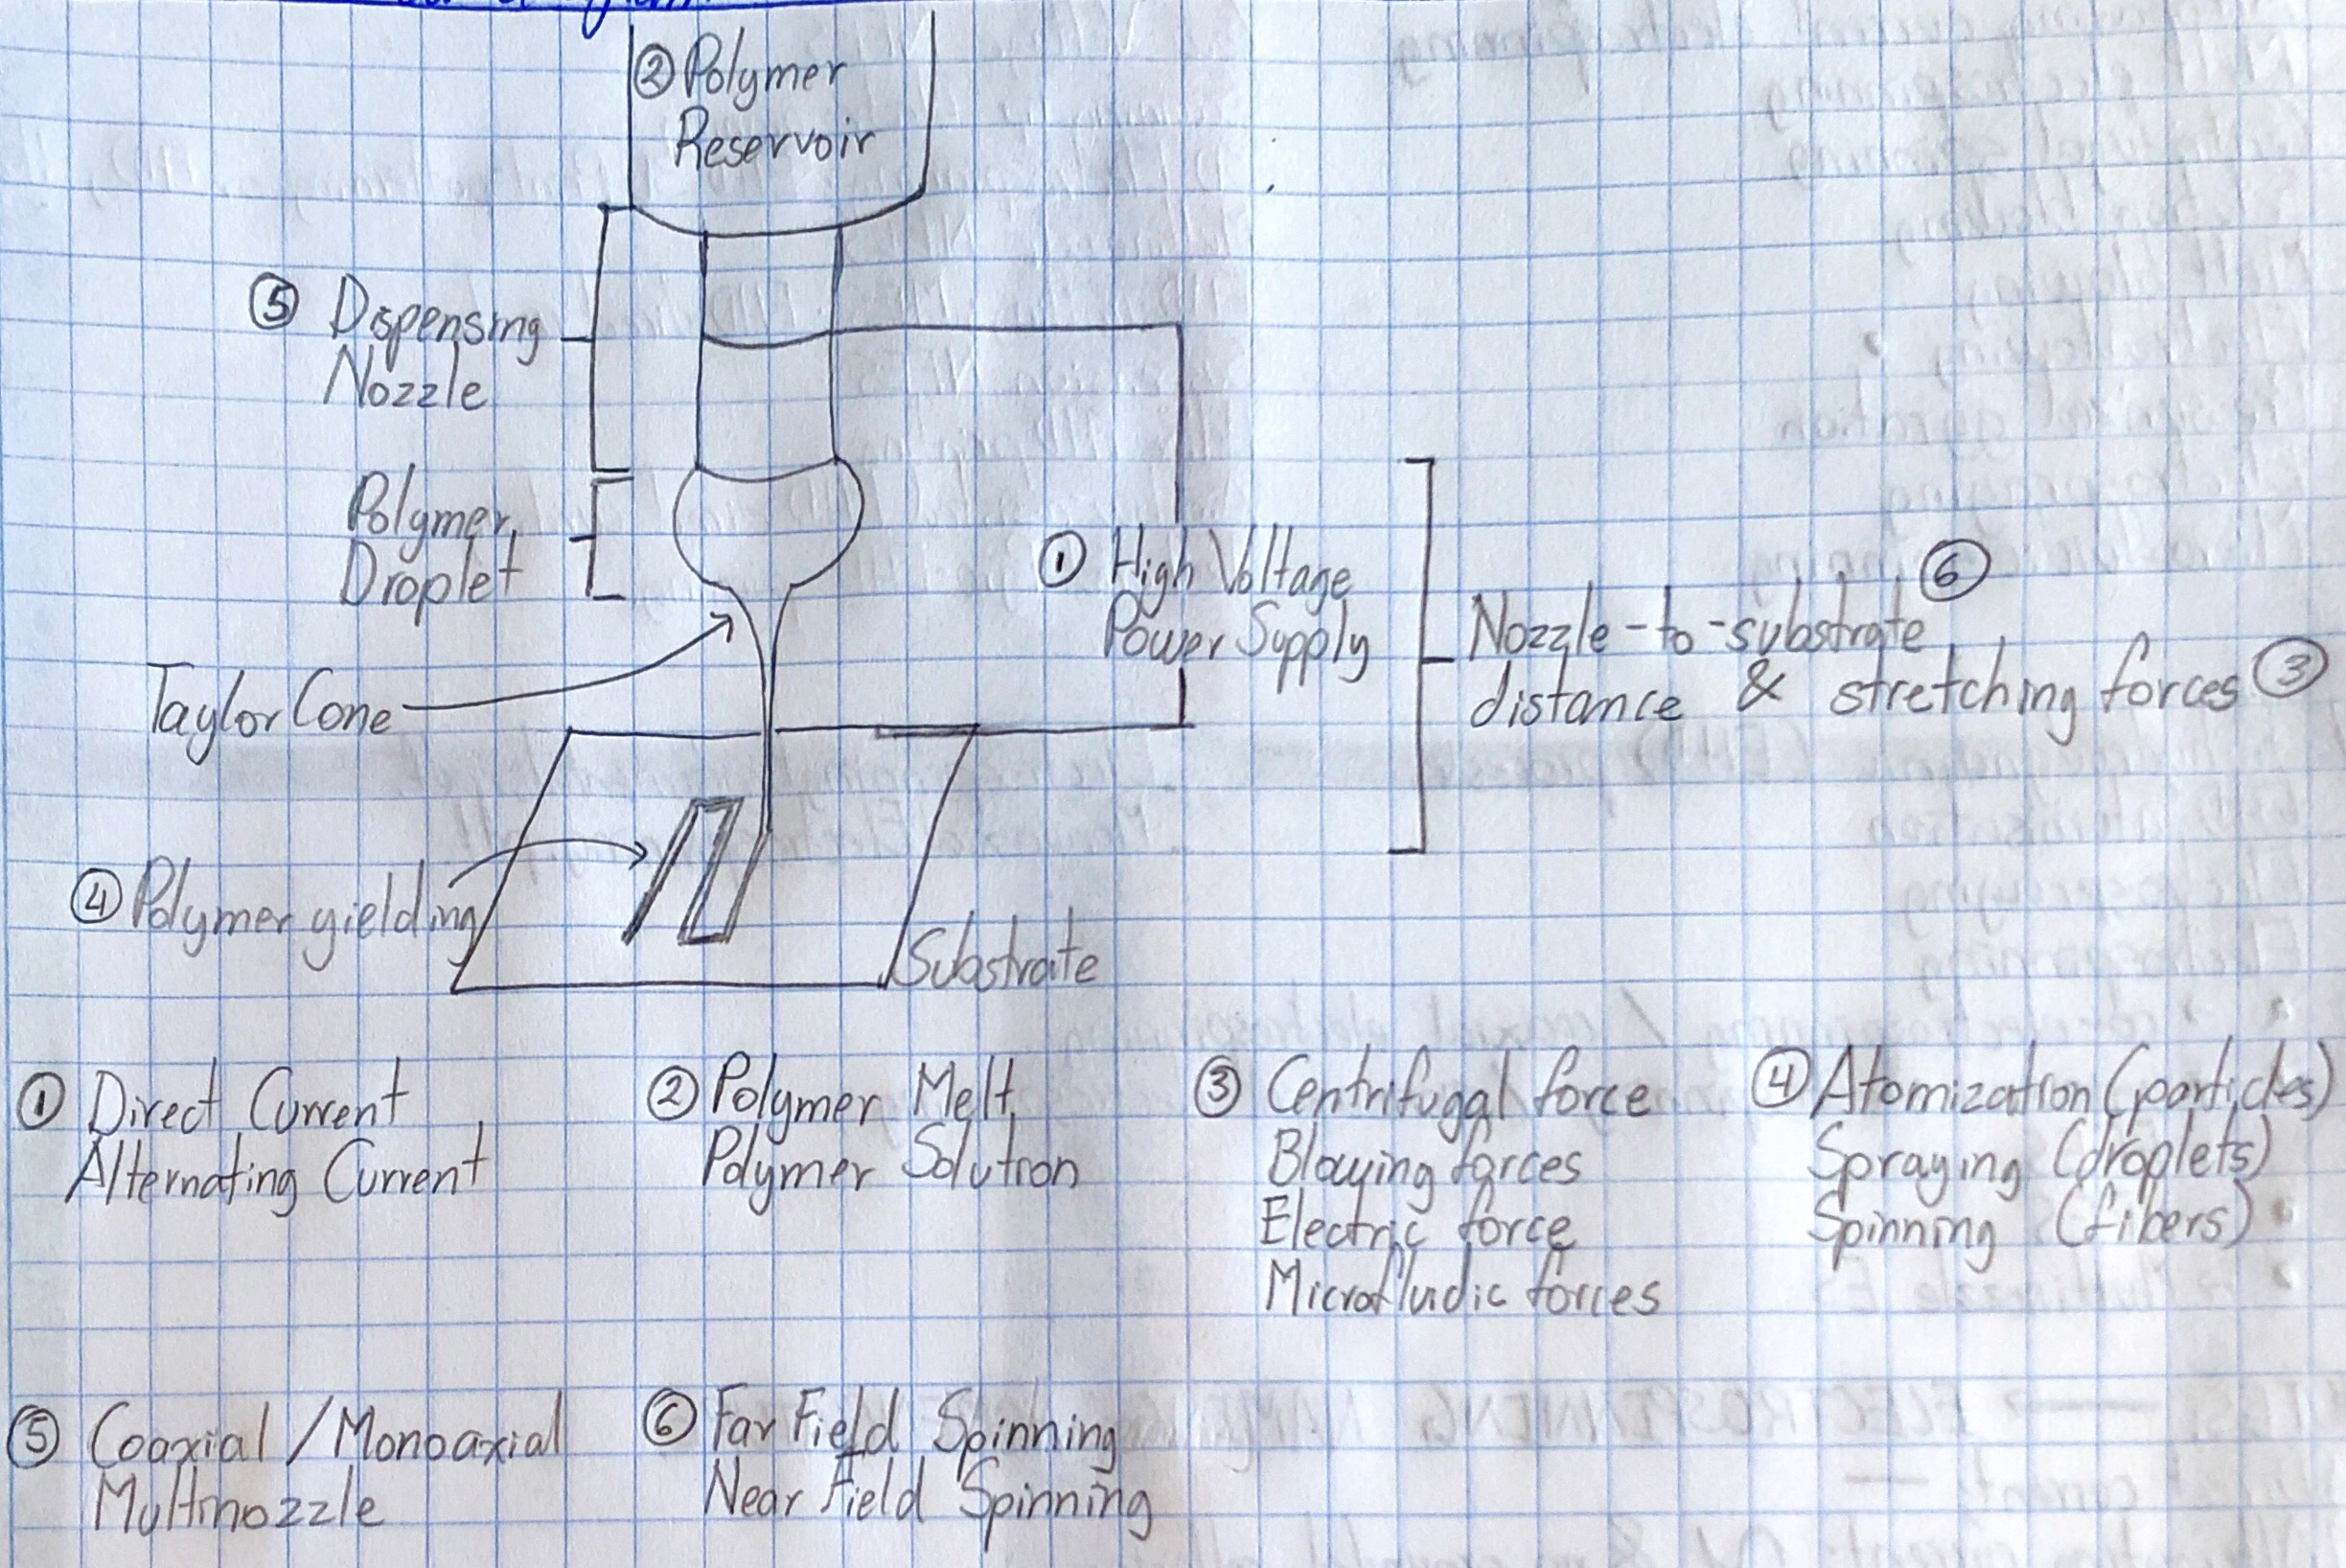 ② Polymer
Reservoir
⑤ Dispensing
Nozzle
Polymer
Droplet
① High Voltage
Power Supply
Nozzle-to-substrate ⑥
distance & stretching forces ③
Taylor Cone
④ Polymer yielding
Substrate
① Direct Current
Alternating Current
② Polymer Melt
Polymer Solution
③ Centrifugal force
Blowing forces
Electric force
Microfluidic forces
④ Atomization (particles)
Spraying (droplets)
Spinning (fibers)
⑤ Coaxial / Monoaxial
Multinozzle
⑥ Far Field Spinning
Near Field Spinning